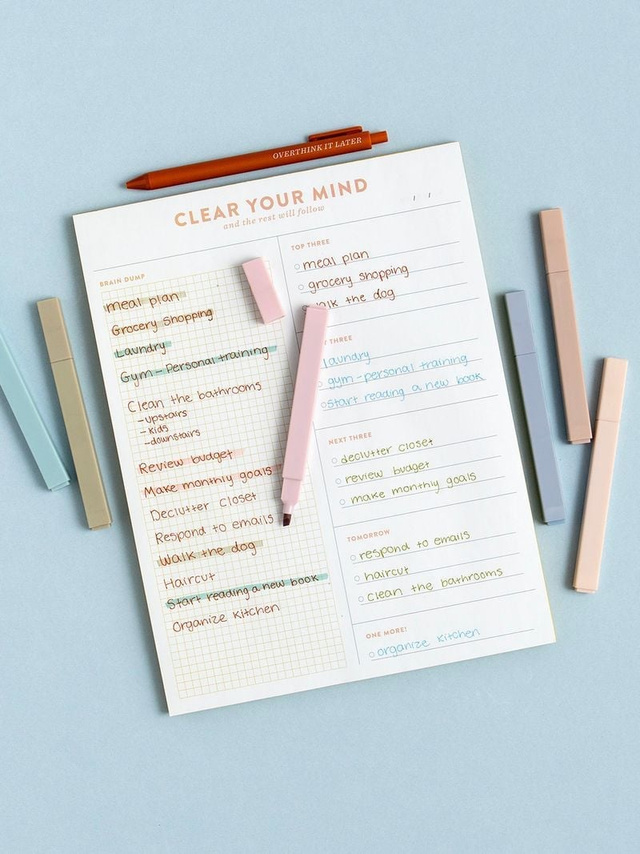 OVERTHINK IT LATER
CLEAR YOUR MIND
and the rest will follow
/ /
BRAIN DUMP
meal plan
Grocery Shopping
Laundry
Gym - Personal training
Clean the bathrooms
- upstairs
- kids
- downstairs
Review budget
Make monthly goals
Declutter Closet
Respond to emails
Walk the dog
Haircut
Start reading a new book
Organize Kitchen
TOP THREE
meal plan
grocery shopping
walk the dog
THREE
laundry
gym - personal training
start reading a new book
NEXT THREE
declutter closet
review budget
make monthly goals
TOMORROW
respond to emails
haircut
clean the bathrooms
ONE MORE!
organize kitchen